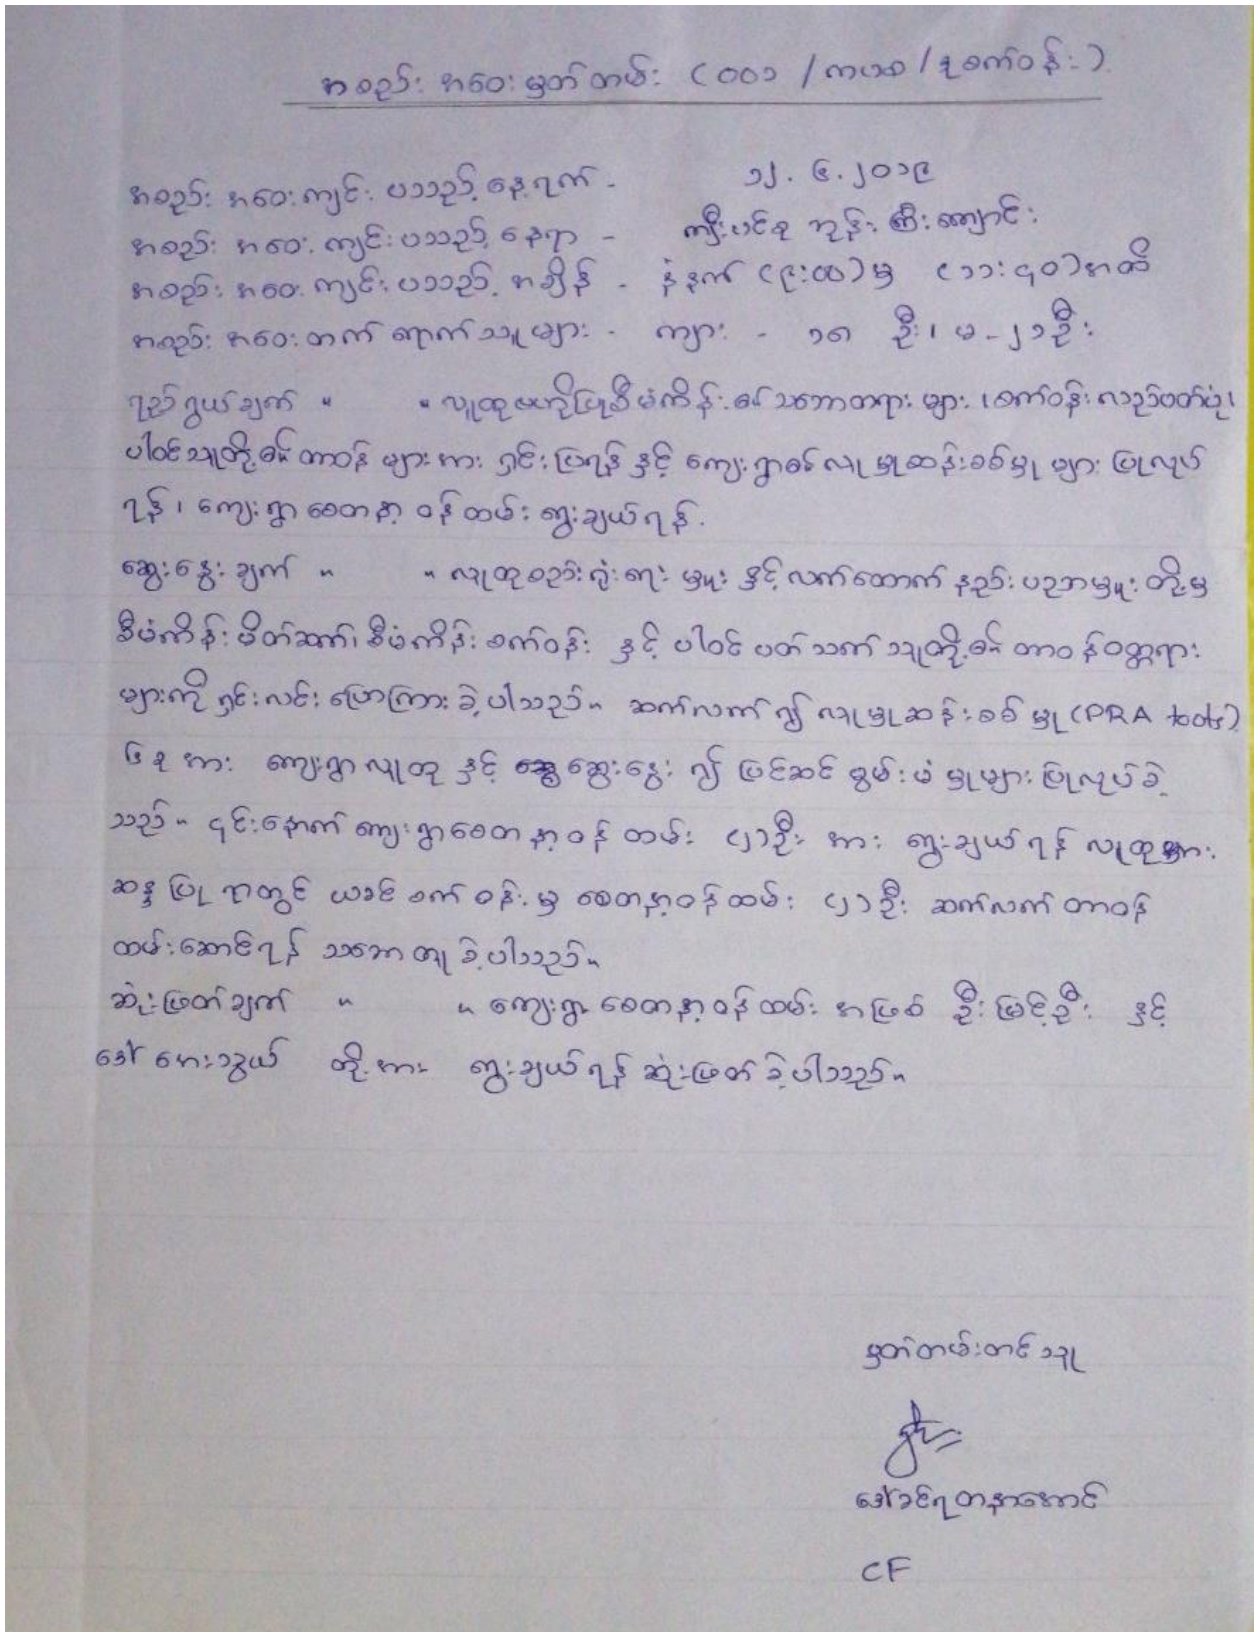 အစည်း အဝေး မှတ်တမ်း (၀၀၁ / ကပစ / ဒု စက်ဝန်း)
အစည်း အဝေး ကျင်း ပသည့် နေ့ရက် - ၁၂. ၆. ၂၀၁၉
အစည်း အဝေး ကျင်းပသည့် နေရာ - ကျီးပင်စု ဘုန်း ကြီး ကျောင်း
အစည်း အဝေး ကျင်းပသည့် အချိန် - နံနက် (၉:၀၀) မှ (၁၁:၄၀) အထိ
အစည်း အဝေး တက် ရောက် သူ များ - ကျား - ၁၈ ဦး၊ မ - ၂၁ ဦး
ရည်ရွယ်ချက် ။ ။ လူထုဗဟိုပြုစီမံကိန်း၏ သဘောတရား များ ၊ စက်ဝန်း လည်ပတ်ပုံ၊
ပါဝင်သူတို့၏ တာဝန် များ အား ရှင်းပြရန် နှင့် ကျေးရွာ၏ လူမှုဆန်းစစ်မှု များ ပြုလုပ်
ရန်၊ ကျေးရွာ စေတနာ့ ဝန်ထမ်း ရွေးချယ်ရန်.
ဆွေးနွေး ချက် ။ ။ လူထုစည်းရုံးရေး မှူး နှင့် လက်ထောက် နည်း ပညာမှူး တို့မှ
စီမံကိန်း မိတ်ဆက်၊ စီမံကိန်း စက်ဝန်း နှင့် ပါဝင် ပတ်သက် သူတို့၏ တာဝန်ဝတ္တရား
များကို ရှင်းလင်း ပြောကြား ခဲ့ပါသည်။ ဆက်လက်၍ လူမှုဆန်းစစ် မှု (PRA tools)
၆ ခု အား ကျေးရွာလူထု နှင့် ဆွေးနွေး ၍ ပြင်ဆင် စွမ်း မံ မှုများ ပြုလုပ်ခဲ့
သည်။ ၎င်းနောက် ကျေးရွာစေတနာ့ဝန်ထမ်း (၂) ဦး အား ရွေးချယ်ရန် လူထုအား
ဆန္ဒပြု ရာတွင် ယခင် စက်ဝန်း မှ စေတနာ့ဝန်ထမ်း (၂) ဦး ဆက်လက် တာဝန်
ထမ်းဆောင်ရန် သဘော တူ ခဲ့ပါသည်။
ဆုံးဖြတ်ချက် ။ ။ ကျေးရွာ စေတနာ့ဝန်ထမ်း အဖြစ် ဦးမြင့်ဦး နှင့်
ဒေါ်အေးသွယ် တို့အား ရွေးချယ်ရန် ဆုံးဖြတ်ခဲ့ပါသည်။
မှတ်တမ်းတင်သူ
ဒေါ်ခင်ရတနာအောင်
CF